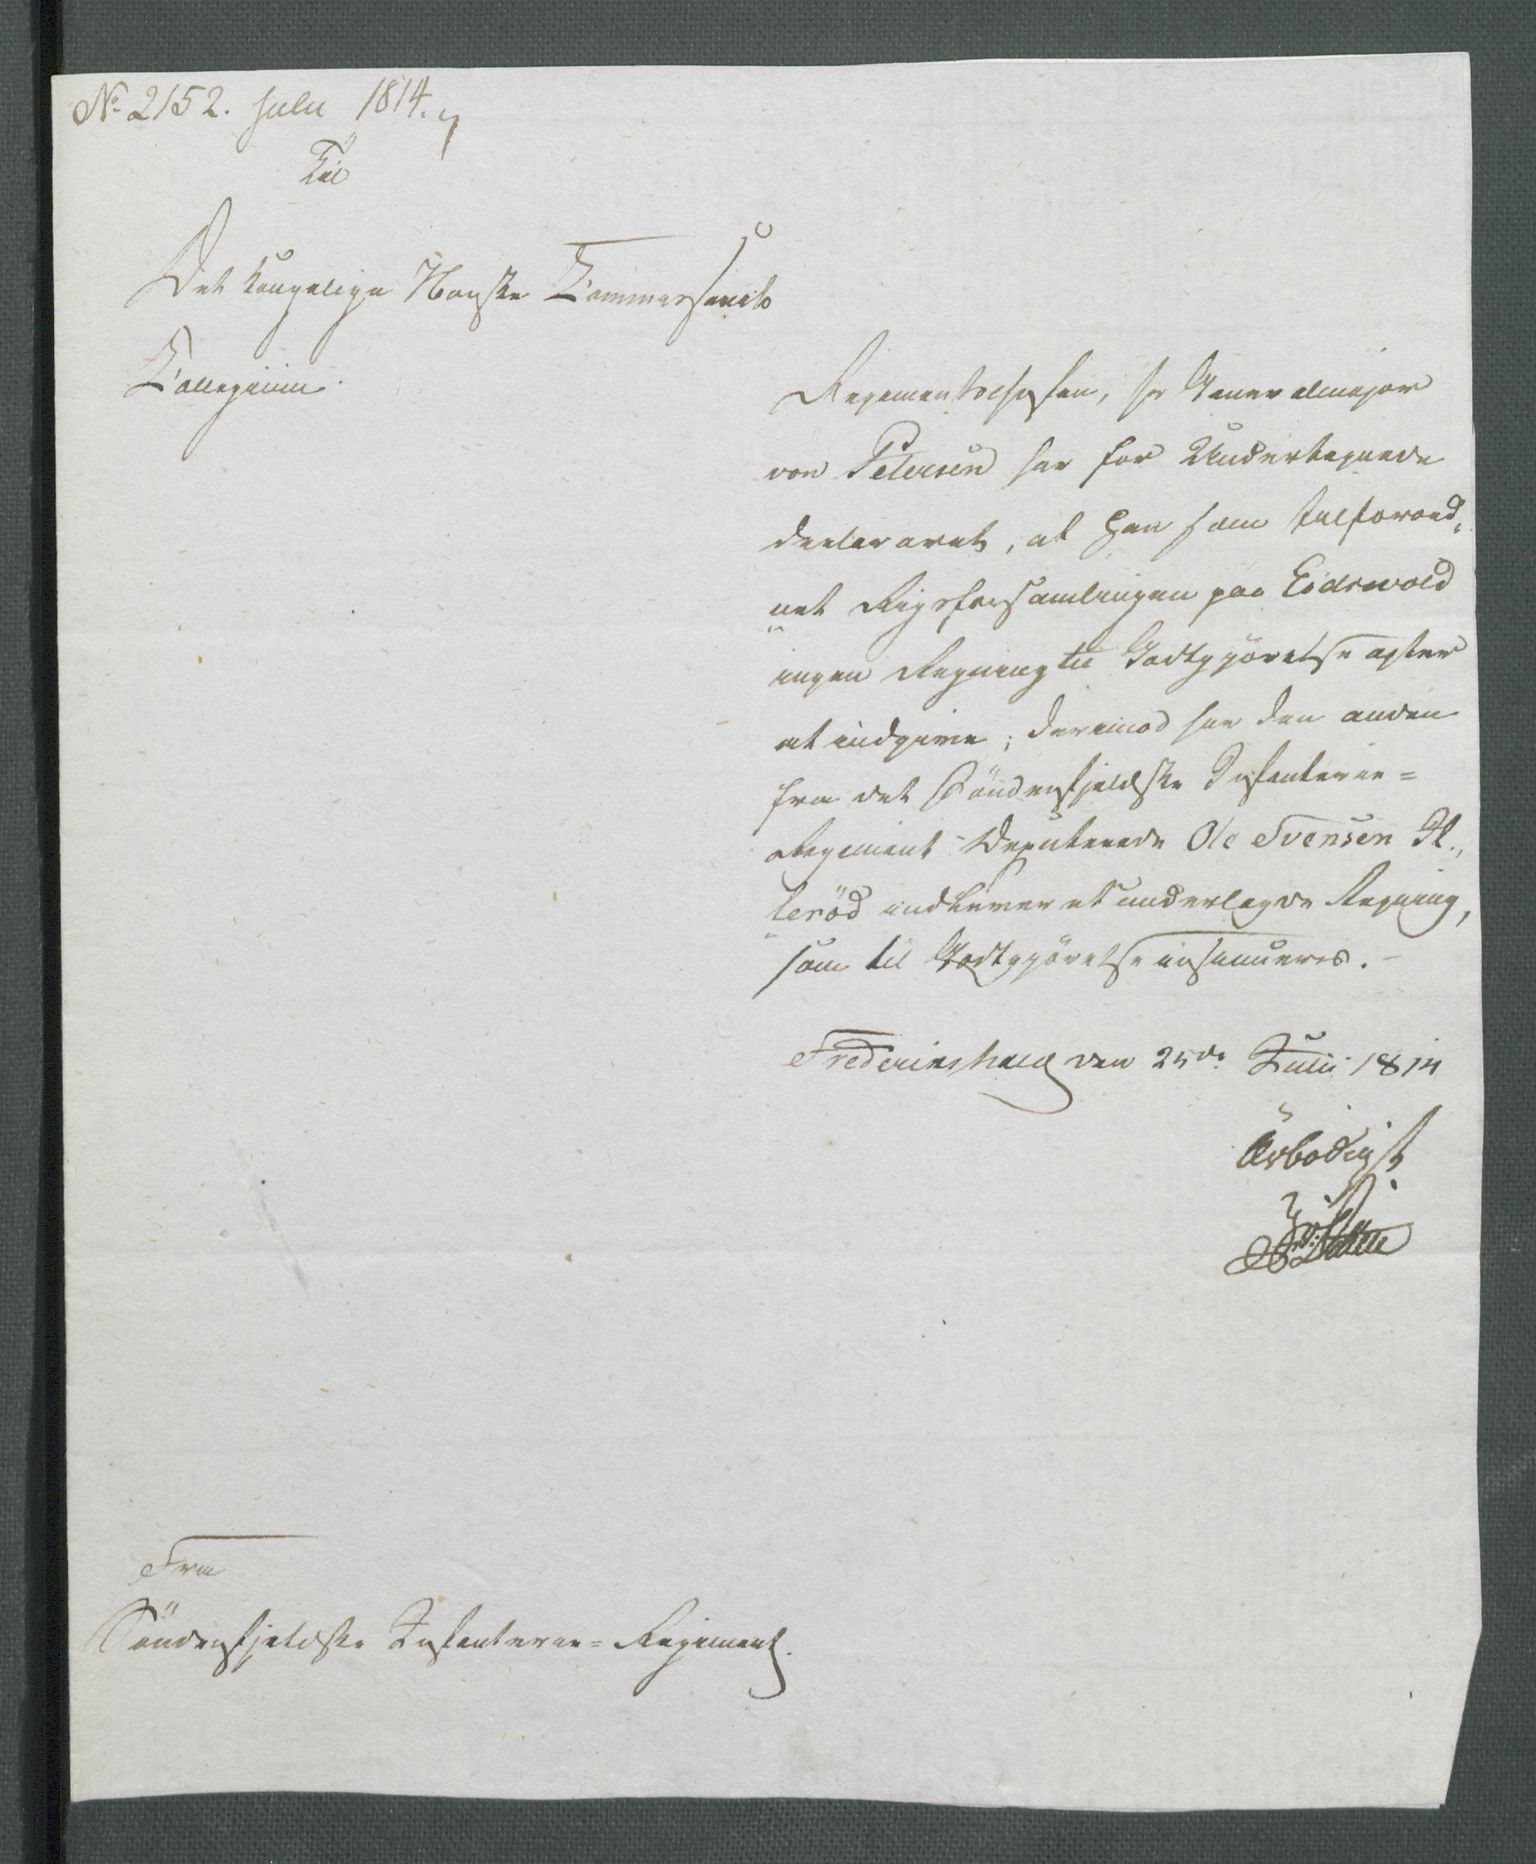 No 2152. Julii 1814.
Til
Det kongelige Norske Commersariats
Collegium.
Regimentschefen, Hr Generalmajor
von Petersen har for Undertegnede
declareret, at han som tilforord,
net Rigsforsamlingen paa Eidswold
ingen Regning til Godtgjörelse agter
at indgive; derimod har den anden
fra det Söndenfjeldske Infanterie=
Regiment Deputerede Ole Svensen Il,,
leröd indleveret underlagde Regning,
som til Godtgjörelse insinueres.
Fredericshald den 25de Julii 1814
Ærbödigst
Fra
Söndenfjeldske Infanterie=Regiment.